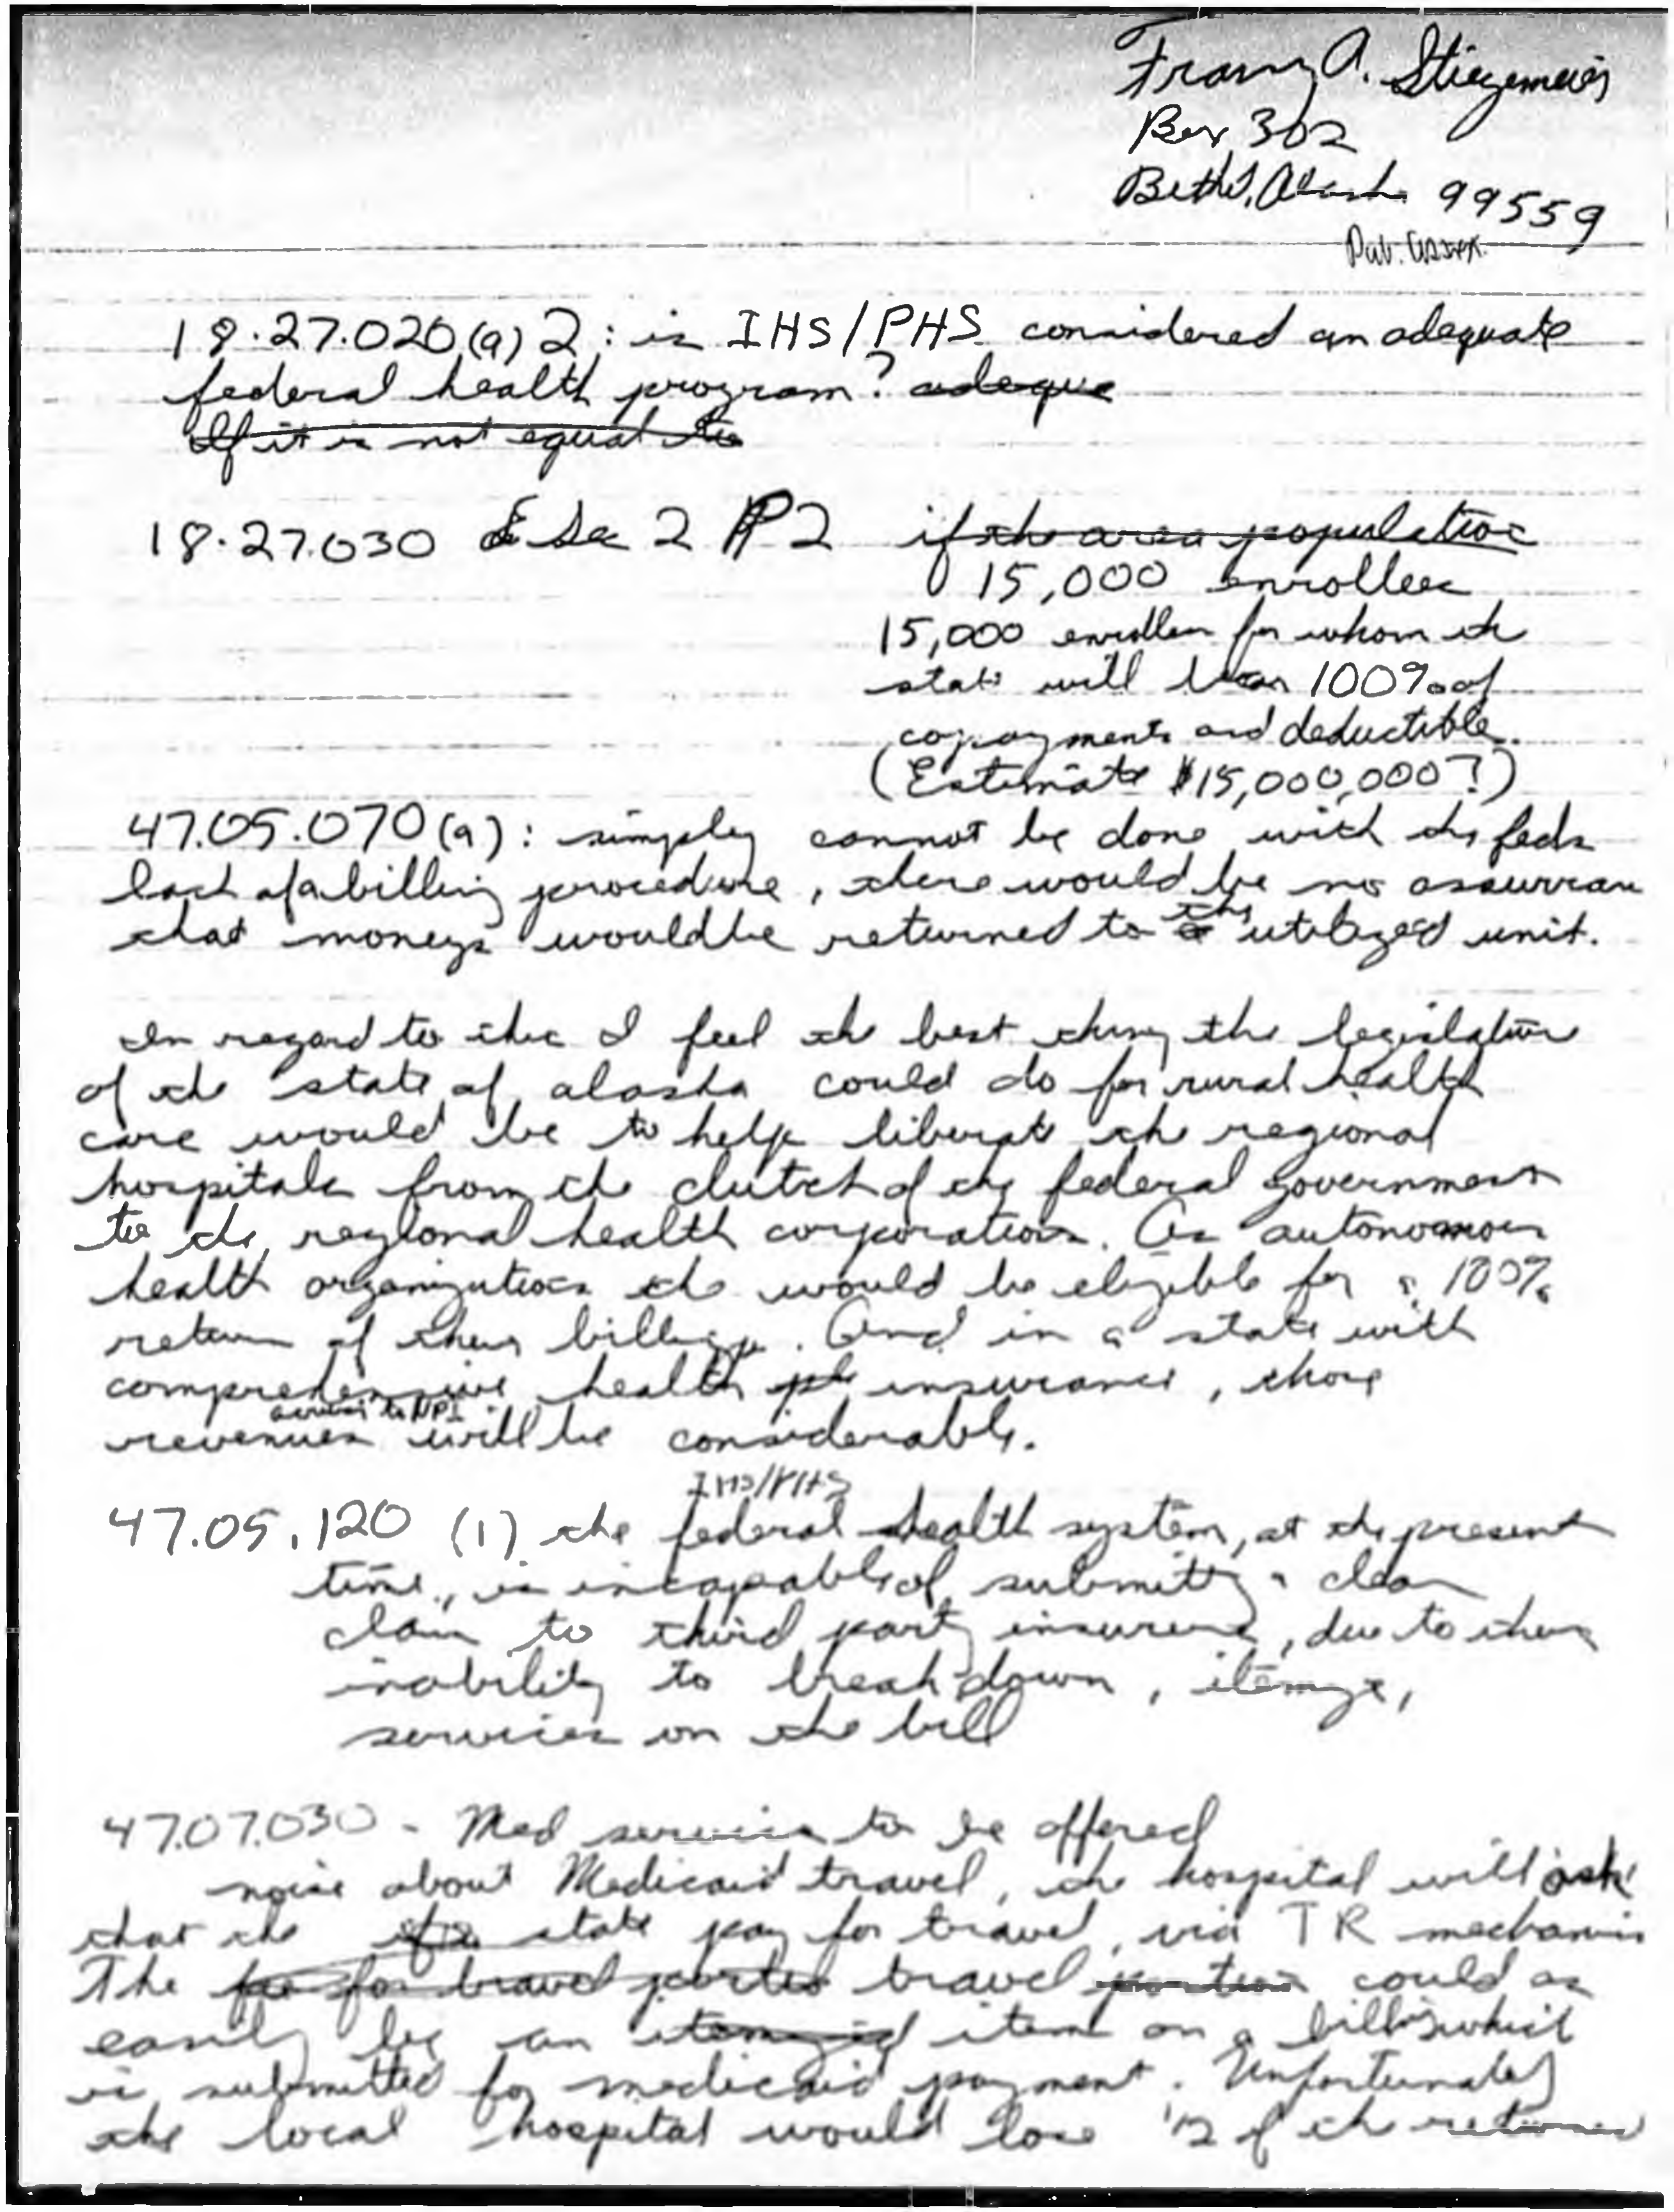 Franz A. Stiegemeier
Box 302
Bethel, Alaska 99559
Pub. Assist.
18.27.020(a)2: is IHS/PHS considered an adequate
federal health program? adeque
If it is not equal to
18.27.030 & Sec 2 P2 if the area population
15,000 enrollees
15,000 enrollees for whom the
state will 100% of
copayments and deductible.
(Estimate $15,000,000?)
47.05.070(a): simply cannot be done with the feds
lack of a billing procedure, there would be no assurance
that moneys would be returned to the utilized unit.
In regard to this I feel the best thing the legislature
of the state of alaska could do for rural health
care would be to help liberate the regional
hospitals from the clutch of the federal government
to the regional health corporations. As autonomous
health organizations the would be eligible for a 100%
return of their billings. And in a state with
comprehensive health insurance, those
revenues accrued to NPI will be considerable.
IHS/PHS
47.05.120 (1) the federal health system, at the present
time, is incapable of submitting a clean
claim to third party insurers, due to their
inability to breakdown, itemize,
services on the bill
47.07.030 - Med services to be offered
noise about Medicaid travel, the hospital will ask
that the state pay for travel, via TR mechanism
The fee for travel portion travel portion could as
easily be an itemized item on a bill which
is submitted for medicaid payment. Unfortunately
the local hospital would lose 1/2 of the returned